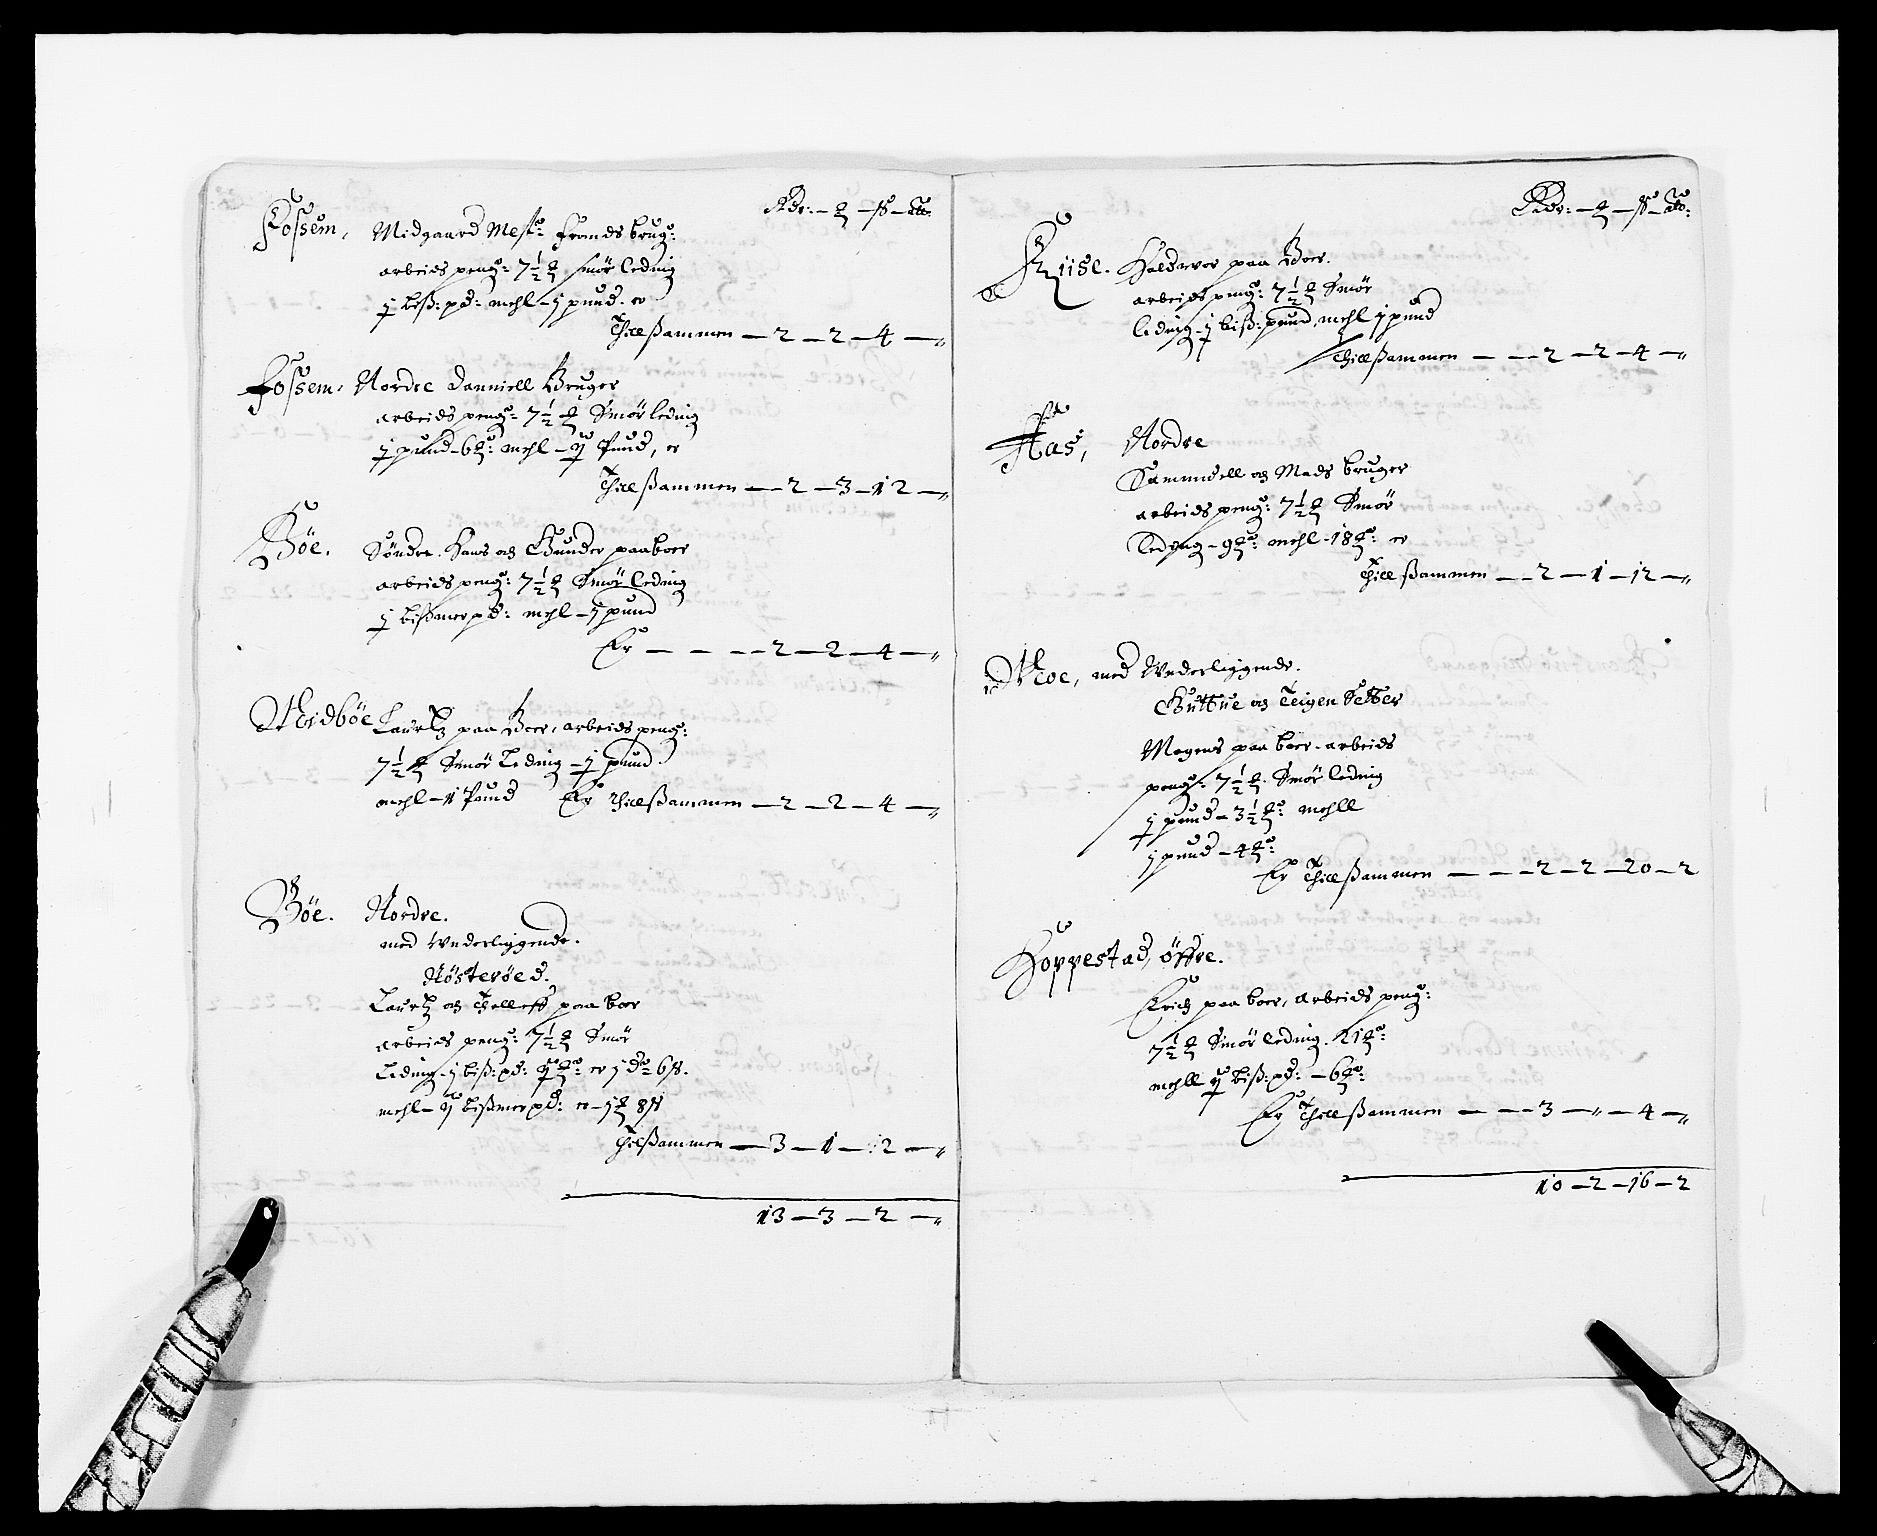 Rdr: – ƺ – ß –
Fossem, Midgaard Mest: Frands brug:
arbeids peng: 7½ ƺ Smör leding
j biß: pd: mehl – j pund. er
Thillßammen — 2 — 2 — 4 — „
Fossem, Nordre Danniell Bruger
arbeids peng: 7½ ƺ Smör leding
j pund – 6 mehl – ij Pund, er
Thillßammen — 2 — 3 — 12 — „
Böe. Söndre. Hans og Gunder paaboer
arbeids peng: 7½ ƺ Smör leding
j bißmerpd: mehl – j pund
Er — — — 2 — 2 — 4 — „
Meidböe Lauritz paa Boer, arbeids peng:
7½ ƺ Smör Leding – j pund
mehl – 1 Pund Er Thillßammen — 2 — 2 — 4 — „
Böe. Nordre.
med Underliggende.
Nösteröed.
Lauritz og Tolleff paa boer
arbeids peng: 7½ ƺ Smör
Leding – j biß: pd: er j 6 ß.
mehl – ij bißmerpd: er – j ƺ 8 ß
Thilßammen — 3 — 1 — 12 — „
13 — 3 — 2 — „
Rdr: – ƺ – ß –
Riise. Haldvor paa Boer.
arbeids peng: 7½ ƺ Smör
leding – j biß: pund, mehl j pund
Thillßammen — — 2 — 2 — 4 — „
Aas, Nordre
Sammuell og Mads bruger
arbeids peng: 7½ ƺ Smör
Leding – 9 mehl – 18 er
Thill ßammen — 2 — 1 — 12 — „
Moe, med Underliggende.
Guttue og Teigen Setter
Mogens paa boer – arbeids
peng: 7½ ƺ Smör leding
j pund – 3½ mehll
j pund – 4
Er Thillßammen — — 2 — 2 — 20 — 2
Hoppestad, öffre.
Erich paa boer, arbeids peng:
7½ ƺ Smör leding. 21
mehll ij biß: pd: – 6
Er Thillßammen — — 3 — „ — 4 — „
10 — 2 — 16 — 2